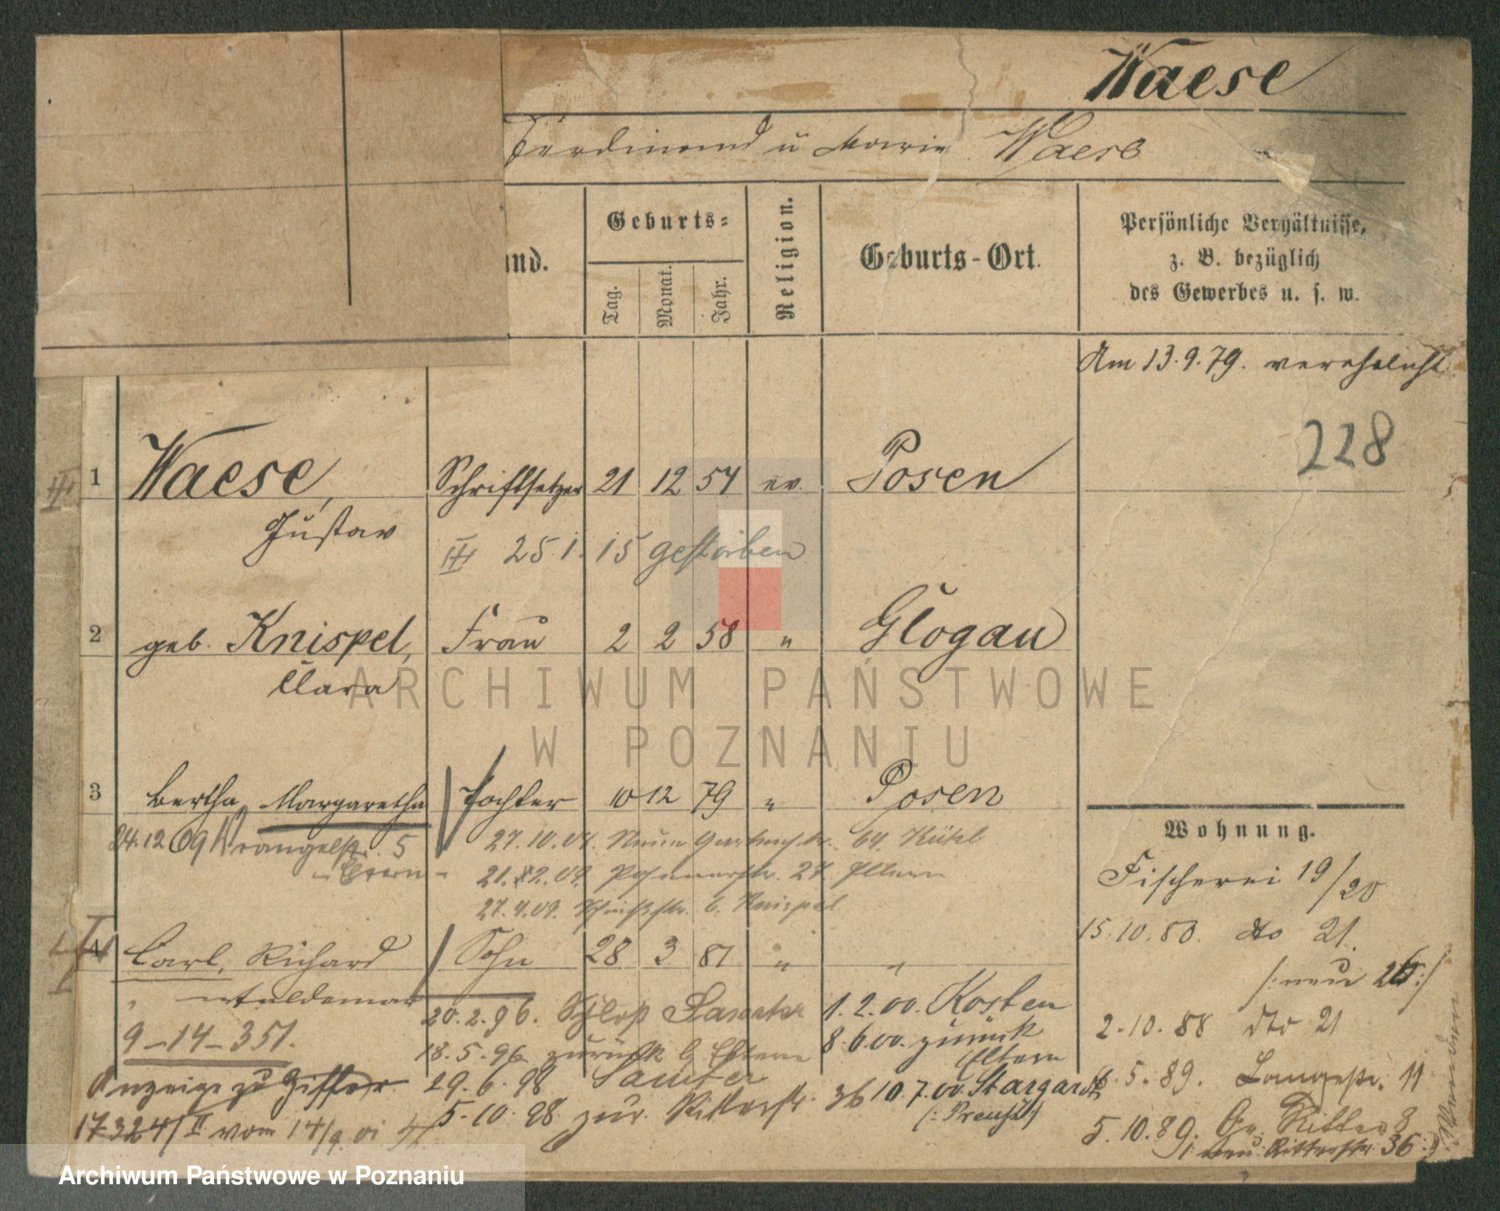 Waese
Ferdinand u Marie Waese
and.
Geburts-
Tag.
Monat.
Jahr.
Religion.
Geburts-Ort.
Persönliche Verhältnisse,
z. B. bezüglich
des Gewerbes u. s. w.
Am 13.9.79. verehelicht
228
1 Waese, Schriftsetzer 21 12 54 ev. Posen
Gustav
III 25.1.15 gestorben
2 geb. Knispel, Frau 2 2 58 " Glogau
Clara
3 Bertha, Margaretha Tochter 10 12 79 " Posen
24.12.09 Wrangelstr. 5
- Eltern -
27.10.07. Neue Gartenstr. 64
21.12.07 27 Eltern
27.4.09. 6. Knispel
Wohnung.
Fischerei 19/20
15.10.80. dto 21.
/:neu 26:/
2.10.88 dto 21
5.89. Langestr. 11
5.10.89. Gr. Ritter 8
/: neu: Ritterstr. 36:/
4 Carl, Richard Sohn 28 3 81 " "
Woldemar
9-14-351.
Anzeige zu
17324/II vom 14/9 01
20.2.96. Schloß Samter
18.5.96 zurück b. Eltern
29.6.98 Samter
5.10.98 zur. Ritterstr. 36
1.2.00. Kosten
8.6.00. zurück
Eltern
10.7.00. Stargardt
(: Preuß:)
ARCHIWUM PAŃSTWOWE
W POZNANIU
Archiwum Państwowe w Poznaniu